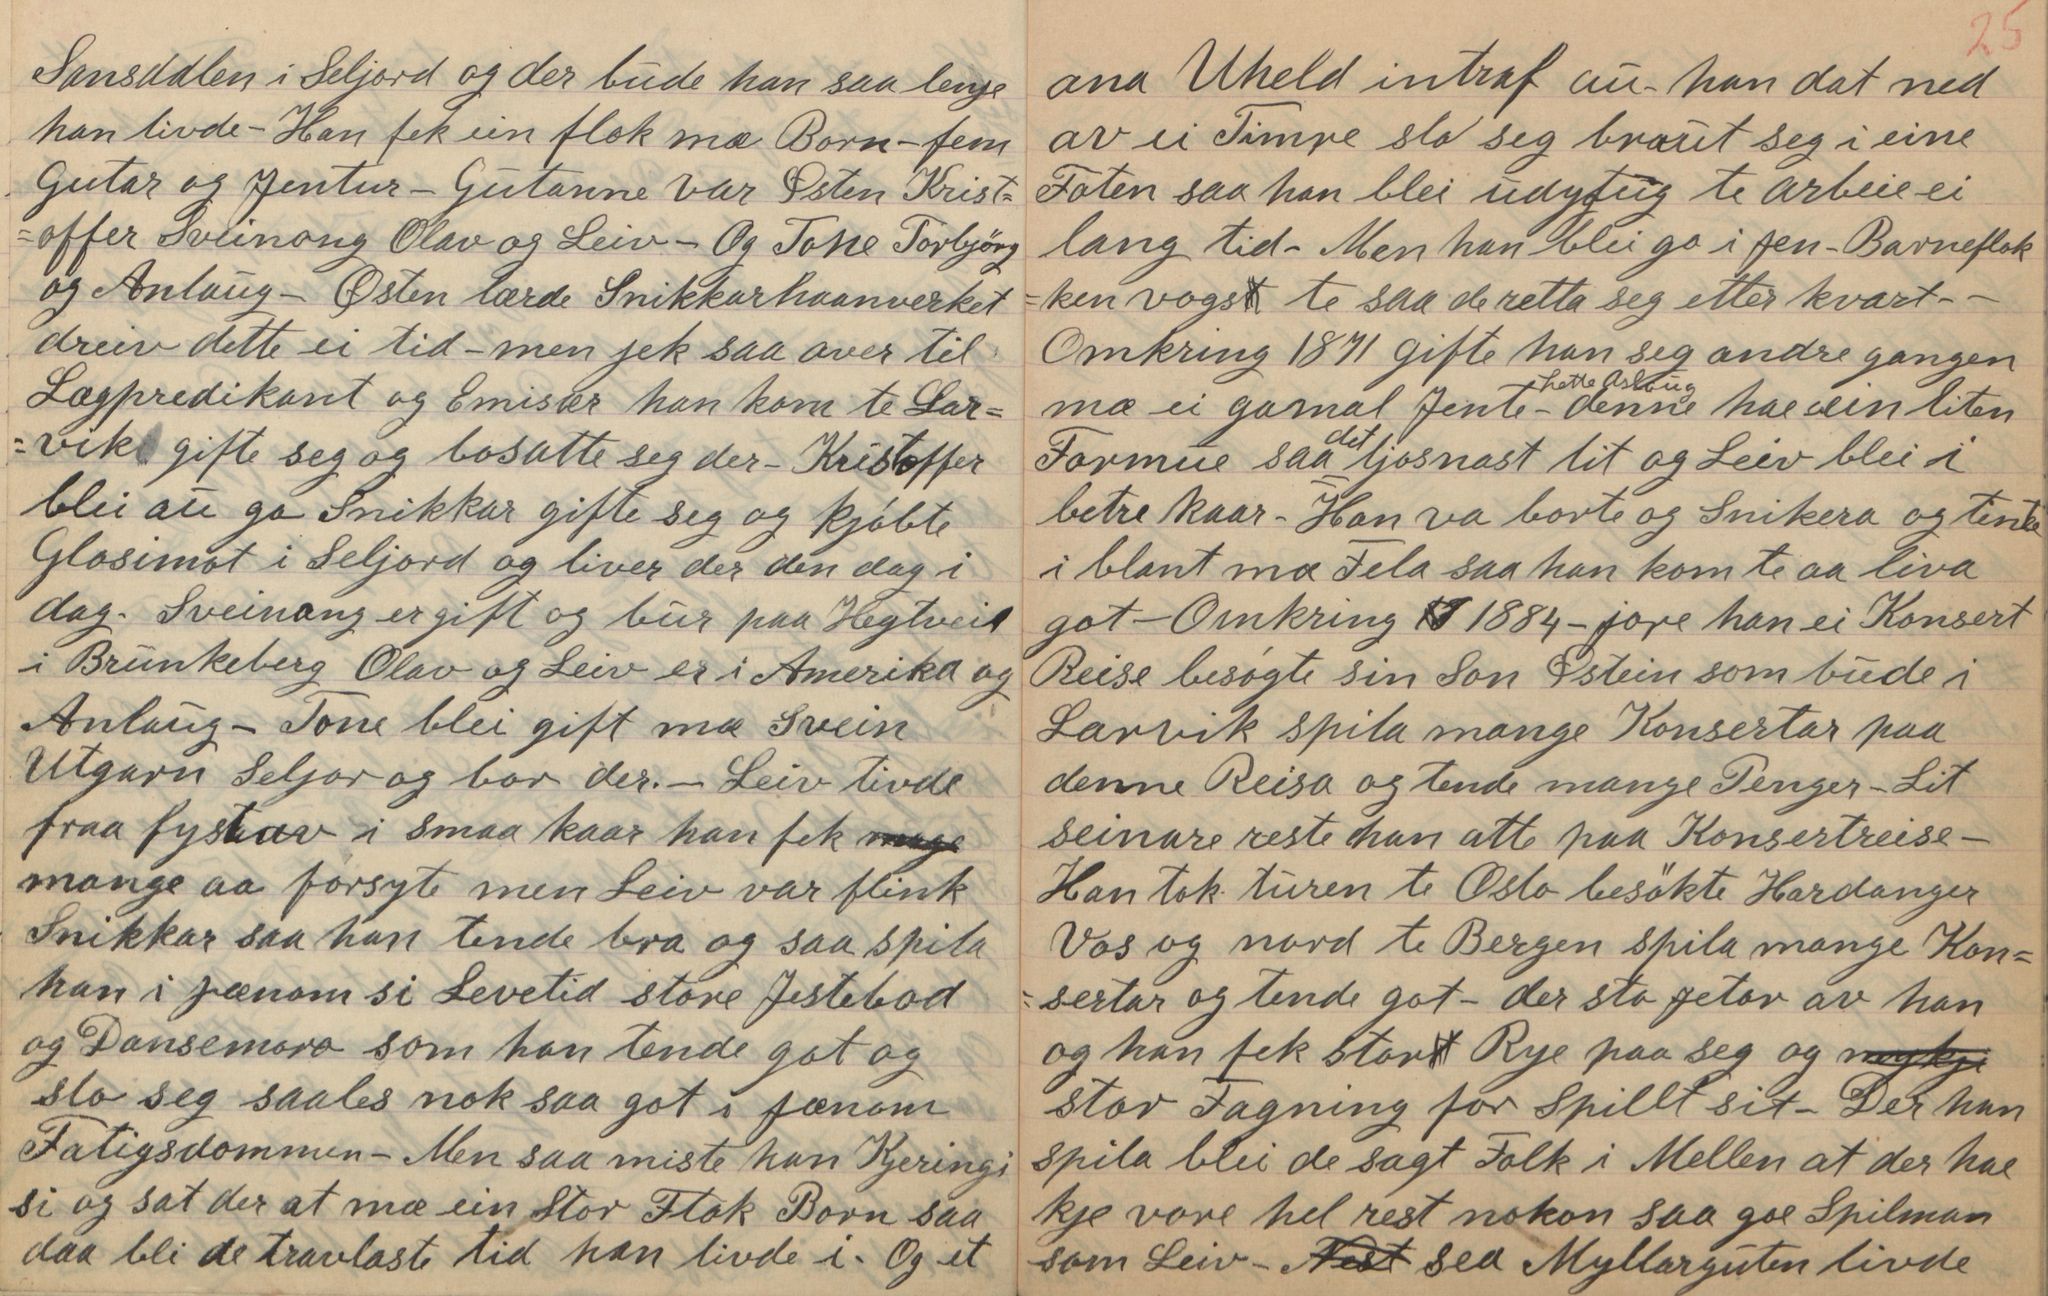 Sansdalen i Seljord og der bude han saa lenje
han livde - Han fek ein flok mæ Born - fem
Gutar og Jentur - Gutanne var Østen Krist=
=offer Sveinong Olav og Leiv - Og Tone Torbjörg
og Anlaug - Østen lærde Snikkarhaanverket
dreiv dette ei tid - men jek saa over til
Lægpredikant og Emisær han kom te Lar=
=vik gifte seg og bosatte seg der - Kristoffer
blei au go Snikkar gifte seg og kjöbte
Glosimot i Seljord og liver der den dag i
dag. Sveinong er gift og bur paa Hegtveit
i Brunkeberg Olav og Leiv er i Amerika og
Anlaug - Tone blei gift mæ Svein
Utgarn Seljor og bor der. - Leiv livde
fraa fystav i smaa kaar han fek mage
mange aa forsyte men Leiv var flink
Snikkar saa han tende bra og saa spila
han i jænom si Levetid store Jestebod
og Dansemoro som han tende got og
slo seg saales nok saa got i jænom
Fatigsdommen - Men saa miste han Kjeringi
si og sat der at mæ ein Stor Flok Born saa
daa bli de travlaste tid han livde i. Og et
25
ana Uheld intraf au - han dat ned
av ei Timre slo seg braut seg i eine
Foten saa han blei udyfug te arbeie ei
lang tid - Men han blei go i jen - Barneflok
=ken vogst te saa de retta seg etter kvart - -
Omkring 1871 gifte han seg andre gangen
hette Aslaug
mæ ei gamal Jente - denne hae ein liten
det
Formue saa ljosnast lit og Leiv blei i
betre kaar - Han va borte og Snikera og tente
i blant mæ Fela saa han kom te aa liva
got - Omkring 1884 - jore han ei Konsert
Reise besögte sin Son Østein som bude i
Larvik spila mange Konsertar paa
denne Reisa og tende mange Penger - Lit
seinare reste han atte paa Konsertreise -
Han tok turen te Oslo besökte Hardanger
Vos og nord te Bergen spila mange Kon=
=sertar og tende got - der sto jetor av han
og han fek stort Rye paa seg og mykje
stor Fagning for Spillt sit - Der han
spila blei de sagt Folk i Mellen at der hae
kje vore hel rest nokon saa goe Spilman
som Leiv - Nest sea Myllarguten livde